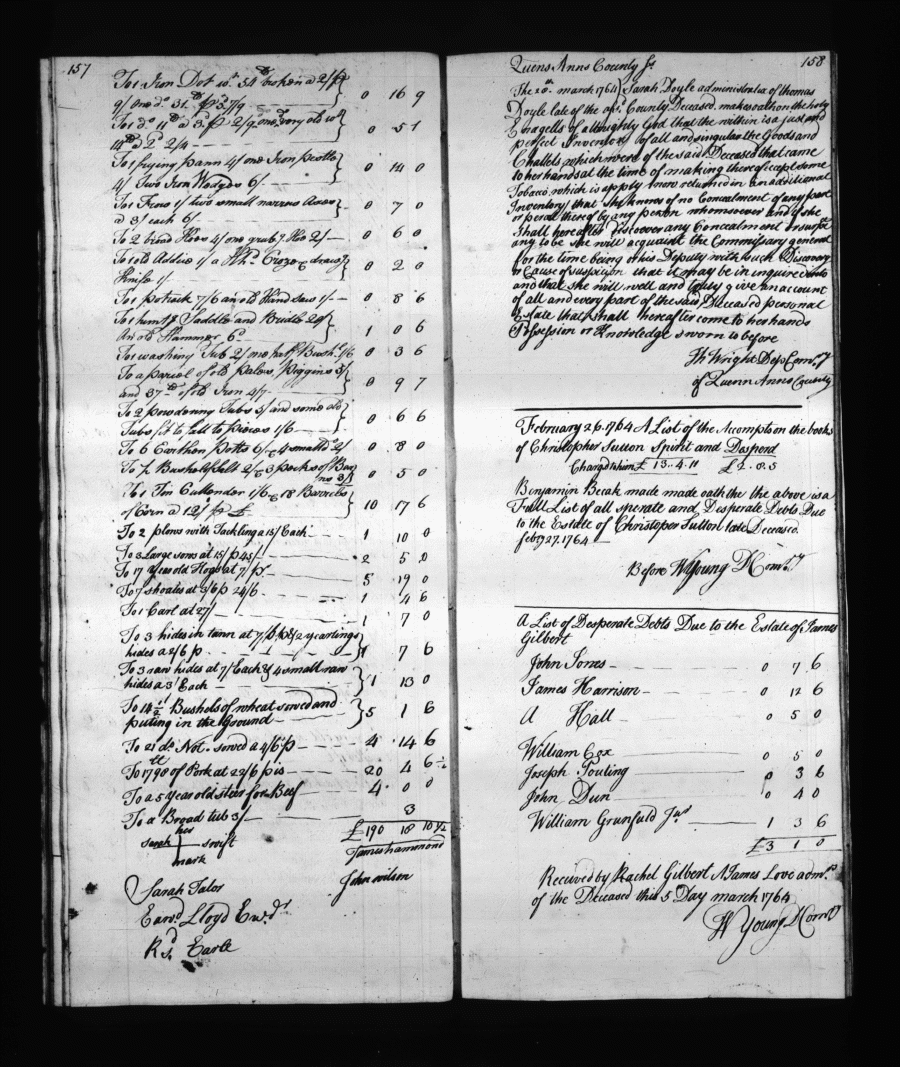 157
To 1 Iron Pot wt. 54 lb broken a 2/p
9/ one do. 31 lb p 3/9 0 16 9
To 1 do. 11 lb a 3d p 2/9 one do very old wt
14 lb a 2d 2/4 0 5 1
To 1 frying pann 4/ one Iron pestle
4/ Two Iron Wedges 6/ 0 14 0
To 1 1/ two small narrow Axes
a 3/ each 6/ 0 7 0
To 2 broad Hoes 4/ one grubg. Hoe 2/ 0 6 0
To 1 old Addze 1/ a Hhd. Croze & drawg
Knife 1/ 0 2 0
To 1 potrack 7/6 an old Hand saw 1/ 0 8 6
To 1 huntg Saddle and Bridle 20/
An old Hammer 6d 1 0 6
To 1 washing Tub 2/ one half Bushl. 1/6 0 3 6
To a parcel of old Palos, Piggins 5/
and 37 lb of old Iron 4/7 0 9 7
To 2 powdering Tubs 5/ and some old
Tubs fit to fall to pieces 1/6 0 6 6
To 6 Earthen Potts 6/ & 4 smalld 2/ 0 8 0
To Bushels Salt 2/ & 3 pecks of Bea
nes 3/ 0 5 0
To 1 Tin Cullender 1/6 & 18 Barrels
of Corn a 12/ p 10 17 6
To 2 plows with Tackling a 15/ Each 1 10 0
To 3 Large sows at 15/ p 45/ 2 5 0
To 17 year old Hogs at 7/ p 5 19 0
To 7 shoates at 3/6 p 24/6 1 4 6
To 1 Cart at 27/ 1 7 0
To 3 hides in tann at 7/ p & 2 yearlings
hides a 2/6 p 1 7 6
To 3 raw hides at 7/ Each & 4 small raw
hides a 3/ Each 1 13 0
To 14 1/2 Bushels of wheat sowed and
puting in the Ground 5 1 6
To 21 do. Not. sowed a 4/6 p 4 14 6
To 1798 lb of Pork at 22/6 p is 20 4 6 1/2
To a 5 year old steer for Beef 4 0 0
To a Broad tub 3/ 3
£190 18 10 1/2
her
Sarah swift
mark
James hammond
John wilson
Sarah Talor
Earvd. Lloyd
Rd. Earle
158
Queens Anns County Sc
The 20th. march 1764 Sarah Doyle administratrix of thomas
Doyle late of the afsd. County Deceased, makes oath on the holy
Evagells of allmighty God that the within is a just and
perfect Inventory of all and singular the Goods and
Chattels which were of the said Deceased that came
to her hands at the time of making thereof except some
Tobacco which is apply now returned in an additional
Inventory that she knows of no Concealment of any part
or percel thereof by any person whomsoever and if she
Shall hereafter discover any Concealment or suspt
any to be she will acquaint the Commissary general
for the time being or his Deputy with such Discovery
or Cause of suspicion that it may be inquired into
and that she will well and truly give an account
of all and every part of the said Deceased personal
Estate that shall hereafter come to her hands
Possession or Knowledge sworn to before
Th Wright Dep Comry
of Queen Anns County
February 26. 1764 A List of the Accompts on the books
of Christopher Sutton Spirit and Desperd
Charge to him £ 13..4.11 £2.8.5
Benjamin Beak made made oath the the above is a
Full List of all sperate and Desperate Debts Due
to the Estate of Christoper Sutton late Deceased.
feby 27. 1764
Before WYoung DComry
A List of Desperate Debts Due to the Estate of James
Gilbert
John Jones 0 7 6
James Harrison 0 12 6
A Hall 0 5 0
William Cox 0 5 0
Joseph Touling 0 3 6
John Dun 0 4 0
William Grunfuld Junr 1 3 6
£3 1 0
Received by Rachel Gilbert & James Love admrs
of the Deceased this 5 Day march 1764
W Young DComry